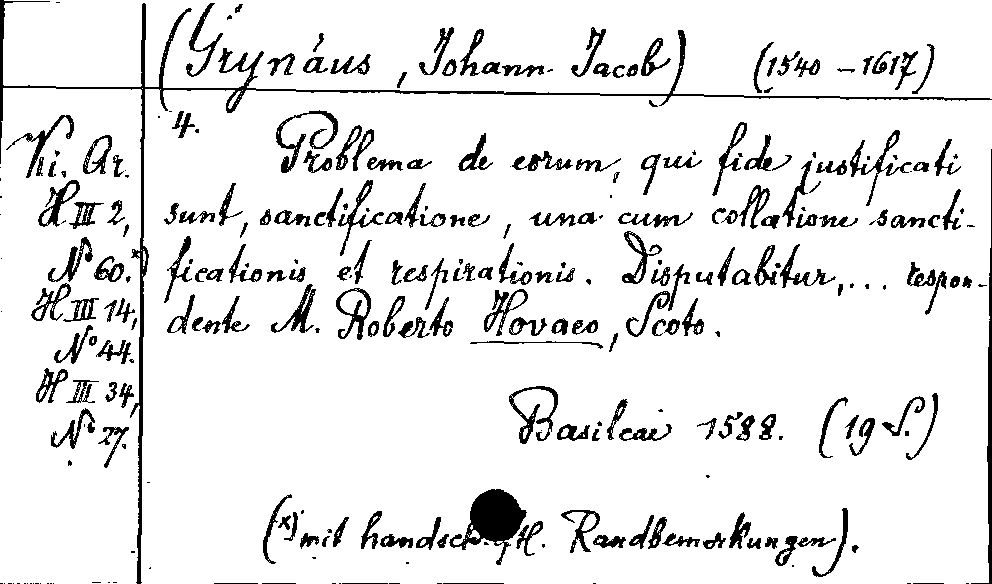 (Grynäus, Johann Jacob) (1540-1617)
4. Problema de eorum, qui fide justificati
Ki. Ar.
H III 2, sunt, sanctificatione, una cum collatione sancti-
No 60.x) ficationis et respirationis. Disputabitur,... respon-
H III 14, dente M. Roberto Hovaeo, Scoto.
No 44.
H III 34,
No 27. Basileae 1588. (19 S.)
(x) mit handschriftl. Randbemerkungen).